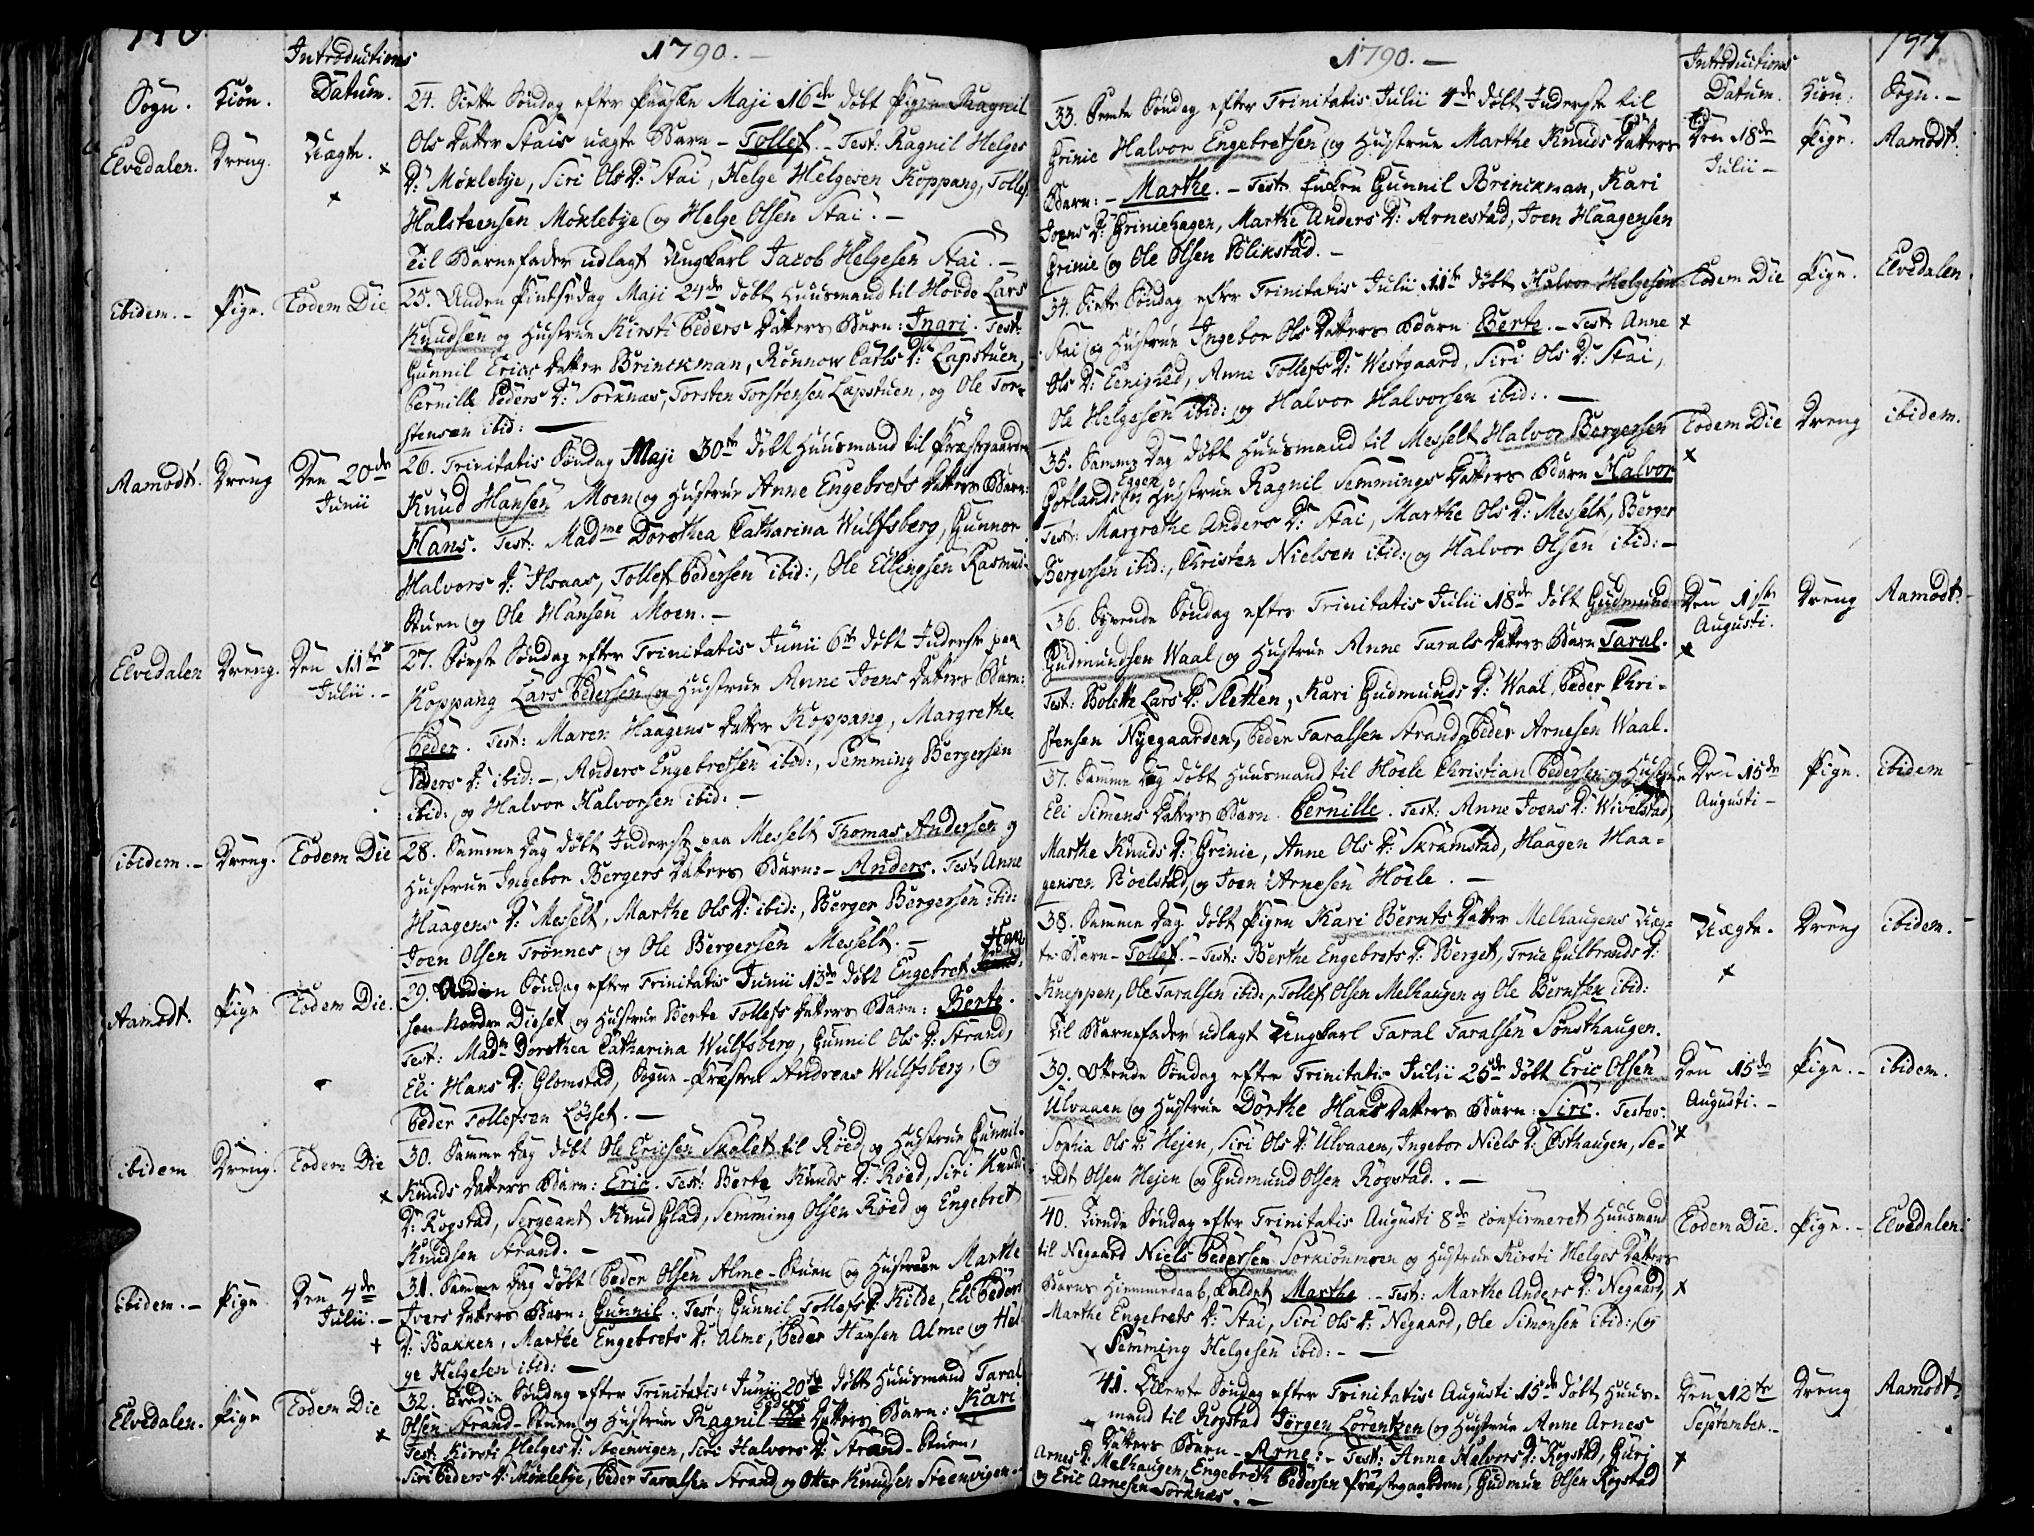 1790.
Introductions
Sogn. Kiön. Datum.
Elvedalen. Dreng. Uægte.
24. Siette Söndag efter Paaske Maji 16de döbt Pigen Ragnil
Ols Datter Stais uægte Barn - Tollef. - Test: Ragnil Helges
D: Möklebye, Siri Ols D: Stai, Helge Helgesen Koppang, Tollef
Halsteensen Möklebye og Helge Olsen Stai. -
Til Barnefader udlagt Ungkarl Jacob Helgesen Stai. -
ibidem. - Pige. Eodem Die
25. Anden Pintsedag Maji 24de döbt Huusmand til Hovde Lars
Knudsen og Hustrue Kirsti Peders Datters Barn: Ingri. Test:
Gunnil Erics Datter Brinckman, Rönnow Carls D: Lapstuen,
Pernille Peders D: Sorknæs, Torsten Torstensen Lapstuen, og Ole Tor-
stensen ibid: -
Aamodt. Dreng Den 20de Junii
26. Trinitatis Söndag Maji 30te döbt Huusmand til Præstegaarden
Knud Hansen Moen og Hustrue Anne Engebrets Datters Barn:
Hans. Test: Madme Dorothea Catharina Wulfsberg, Gunnor
Halvors D: Ilsaas, Tollef Pedersen ibid:, Ole Ellingsen Rasmus-
Stuen og Ole Hansen Moen. -
Elvedalen Dreng. Den 11te Julii. -
27. Förste Söndag efter Trinitatis Junii 6te döbt Inderste paa
Koppang Lars Pedersen og Hustrue Anne Joens Datters Barn:
Peder. Test: Maren Haagens Datter Koppang, Margrethe
Peders D: ibid: -, Anders Engebretsen ibid:, Semming Bergersen
ibid: og Halvor Halvorsen ibid: -
ibidem. - Dreng. Eodem Die
28. Samme Dag döbt Inderst paa Messelt Thomas Andersen og
Hustrue Ingebor Bergers Datters Barn: - Anders. Test: Anne
Haagens D: Messelt, Marthe Ols D: ibid:, Berger Bergersen ibid:
Joen Olsen Trönnes og Ole Bergersen Messelt. -
Aamodt. Pige Eodem Die.
29. Anden Söndag efter Trinitatis Junii 13de döbt Engebret Han
sen Nordre Dieset og Hustrue Berte Tollefs Datters Barn: Berte.
Test: Madm Dorothea Catharina Wulfsberg, Gunnil Ols D: Strand,
Eli Hans D: Glomstad, Sogne-Præsten Andreas Wulfsberg, og
Peder Tollefsen Löset. -
ibidem Dreng. Eodem Die
30. Samme Dag döbt Ole Ericsen Skolet til Röed og Hustrue Gunnil
Knuds Datters Barn: Eric. Test: Berte Knuds D: Röed, Siri Knuds
D: Rogstad, Sergeant Knud Glad, Semming Olsen Röed og Engebret
Knudsen Strand. -
ibidem. - Pige Den 4de Julii. -
31. Samme Dag döbt Peder Olsen Alme-Stuen og Hustrue Marthe
Ivers Datters Barn: Gunnil. Test: Gunnil Tollefs D: Kilde, Eli Peders
D: Bakken, Marthe Engebrets D: Alme, Peder Hansen Alme og Hel-
ge Helgesen ibid: -
Elvedalen. Pige Eodem Die
32. Tredie Söndag efter Trinitatis Junii 20de döbt Huusmand Taral
Olsen Strand-Stuen og Hustrue Ragnil Peders Datters Barn: Kari
Test: Kirsti Helges D: Steenvigen, Siri Halvors D: Strand-Stuen,
Siri Peders D: Möklebye, Peder Taralsen Strand og Otter Knudsen Steenvigen. -
1790. -
Introductions
Datum. Kiön. Sogn. -
33. Femte Söndag efter Trinitatis Julii 4de döbt Inderste til
Grinie Halvor Engebretsen og Hustrue Marthe Knuds Datters
Barn: - Marthe. - Test: Enken Gunnil Brinckman, Kari
Joens D: Griniehagen, Marthe Anders D: Arnestad, Joen Haagensen
Grinie og Ole Olsen Blikstad. -
Den 18de Julii - Pige. Aamodt.
34. Siette Söndag efter Trinitatis Julii 11te döbt Halvor Helgesen
Stai og Hustrue Ingebor Ols Datters Barn Berte. - Test: Anne
Ols D: Eenighed, Anne Tollefs D: Westgaard, Siri Ols D: Stai,
Ole Helgesen ibid: og Halvor Halvorsen ibid: . -
Eodem Die Pige. Elvedalen.
35. Samme Dag döbt Huusmand til Messelt Halvor Bergersen
Eggen
Gotland og Hustrue Ragnil Semmings Datters Barn Halvor
Test: Margrethe Anders D: Stai, Marthe Ols D: Messelt, Berger
Bergersen ibid:, Christen Nielsen ibid: og Halvor Olsen ibid: -
Eodem Die Dreng ibidem.
36. Syvende Söndag efter Trinitatis Julii 18de döbt Gudmund
Gudmundsen Waal og Hustrue Anne Tarals Datters Barn Taral.
Test: Bolette Lars D: Sletten, Kari Gudmunds D: Waal, Peder Chri-
stensen Nyegaarden, Peder Taralsen Strand, Peder Arnesen Waal.
Den 1ste Augusti. Dreng Aamodt.
37. Samme Dag döbt Huusmand til Hoele Christian Pedersen og Hustrue
Eli Simens Datters Barn. Pernille. Test: Anne Joens D: Wivelstad,
Marthe Knuds D: Grinie, Anne Ols D: Skramstad, Haagen Haa-
gensen Boelstad, og Joen Arnesen Hoele. -
Den 15de Augusti - Pige. ibidem
38. Samme Dag döbt Pigen Kari Bernts Datter Melhaugens Uæg-
te Barn - Tollef. - Test: Berthe Engebrets D: Berget, Trui Gulbrands D:
Kneppen, Ole Taralsen ibid:, Tollef Olsen Melhaugen og Ole Berntsen ibid:
Til Barnefader udlagt Ungkarl Taral Taralsen Sönsthaugen.
Uægte. Dreng ibidem.
39. Ottende Söndag efter Trinitatis Julii 25de döbt Eric Olsen
Ulvaaen og Hustrue Dorthe Hans Datters Barn: Siri. Testes:
Sophia Ols D: Hejen, Siri Ols D: Ulvaaen, Ingebor Niels D: Östhaugen, Se-
vedt Olsen Hejen og Gudmund Olsen Rogstad. . -
Den 15de Augusti. - Pige. - ibidem.
40. Tiende Söndag efter Trinitatis Augusti 8de confirmeret Huusmand
til Negaard Niels Pedersen Sorkionmoen og Hustrue Kirsti Helges Datters
Barns Hiemmedaab, kaldet Marthe. - Test: Marthe Anders D: Negaard,
Marthe Engebrets D: Stai, Siri Ols D: Negaard, Ole Simonsen ibid:, og
Semming Helgesen ibid: - -
Eodem Die. Pige. - Elvedalen.
41. Ellevte Söndag efter Trinitatis Augusti 15de döbt Huus-
mand til Rogstad Jörgen Lorentzen og Hustrue Anne Arnes
Datters Barn - Arne: - Test: Anne Halvors D: Rogstad, Guri
Arnes D: Melhaugen, Engebreth Pedersen Præstegaarden, Gudmun Olsen Rogstad
og Eric Arnesen Sorknæs. -
Den 12te September. - Dreng Aamodt.